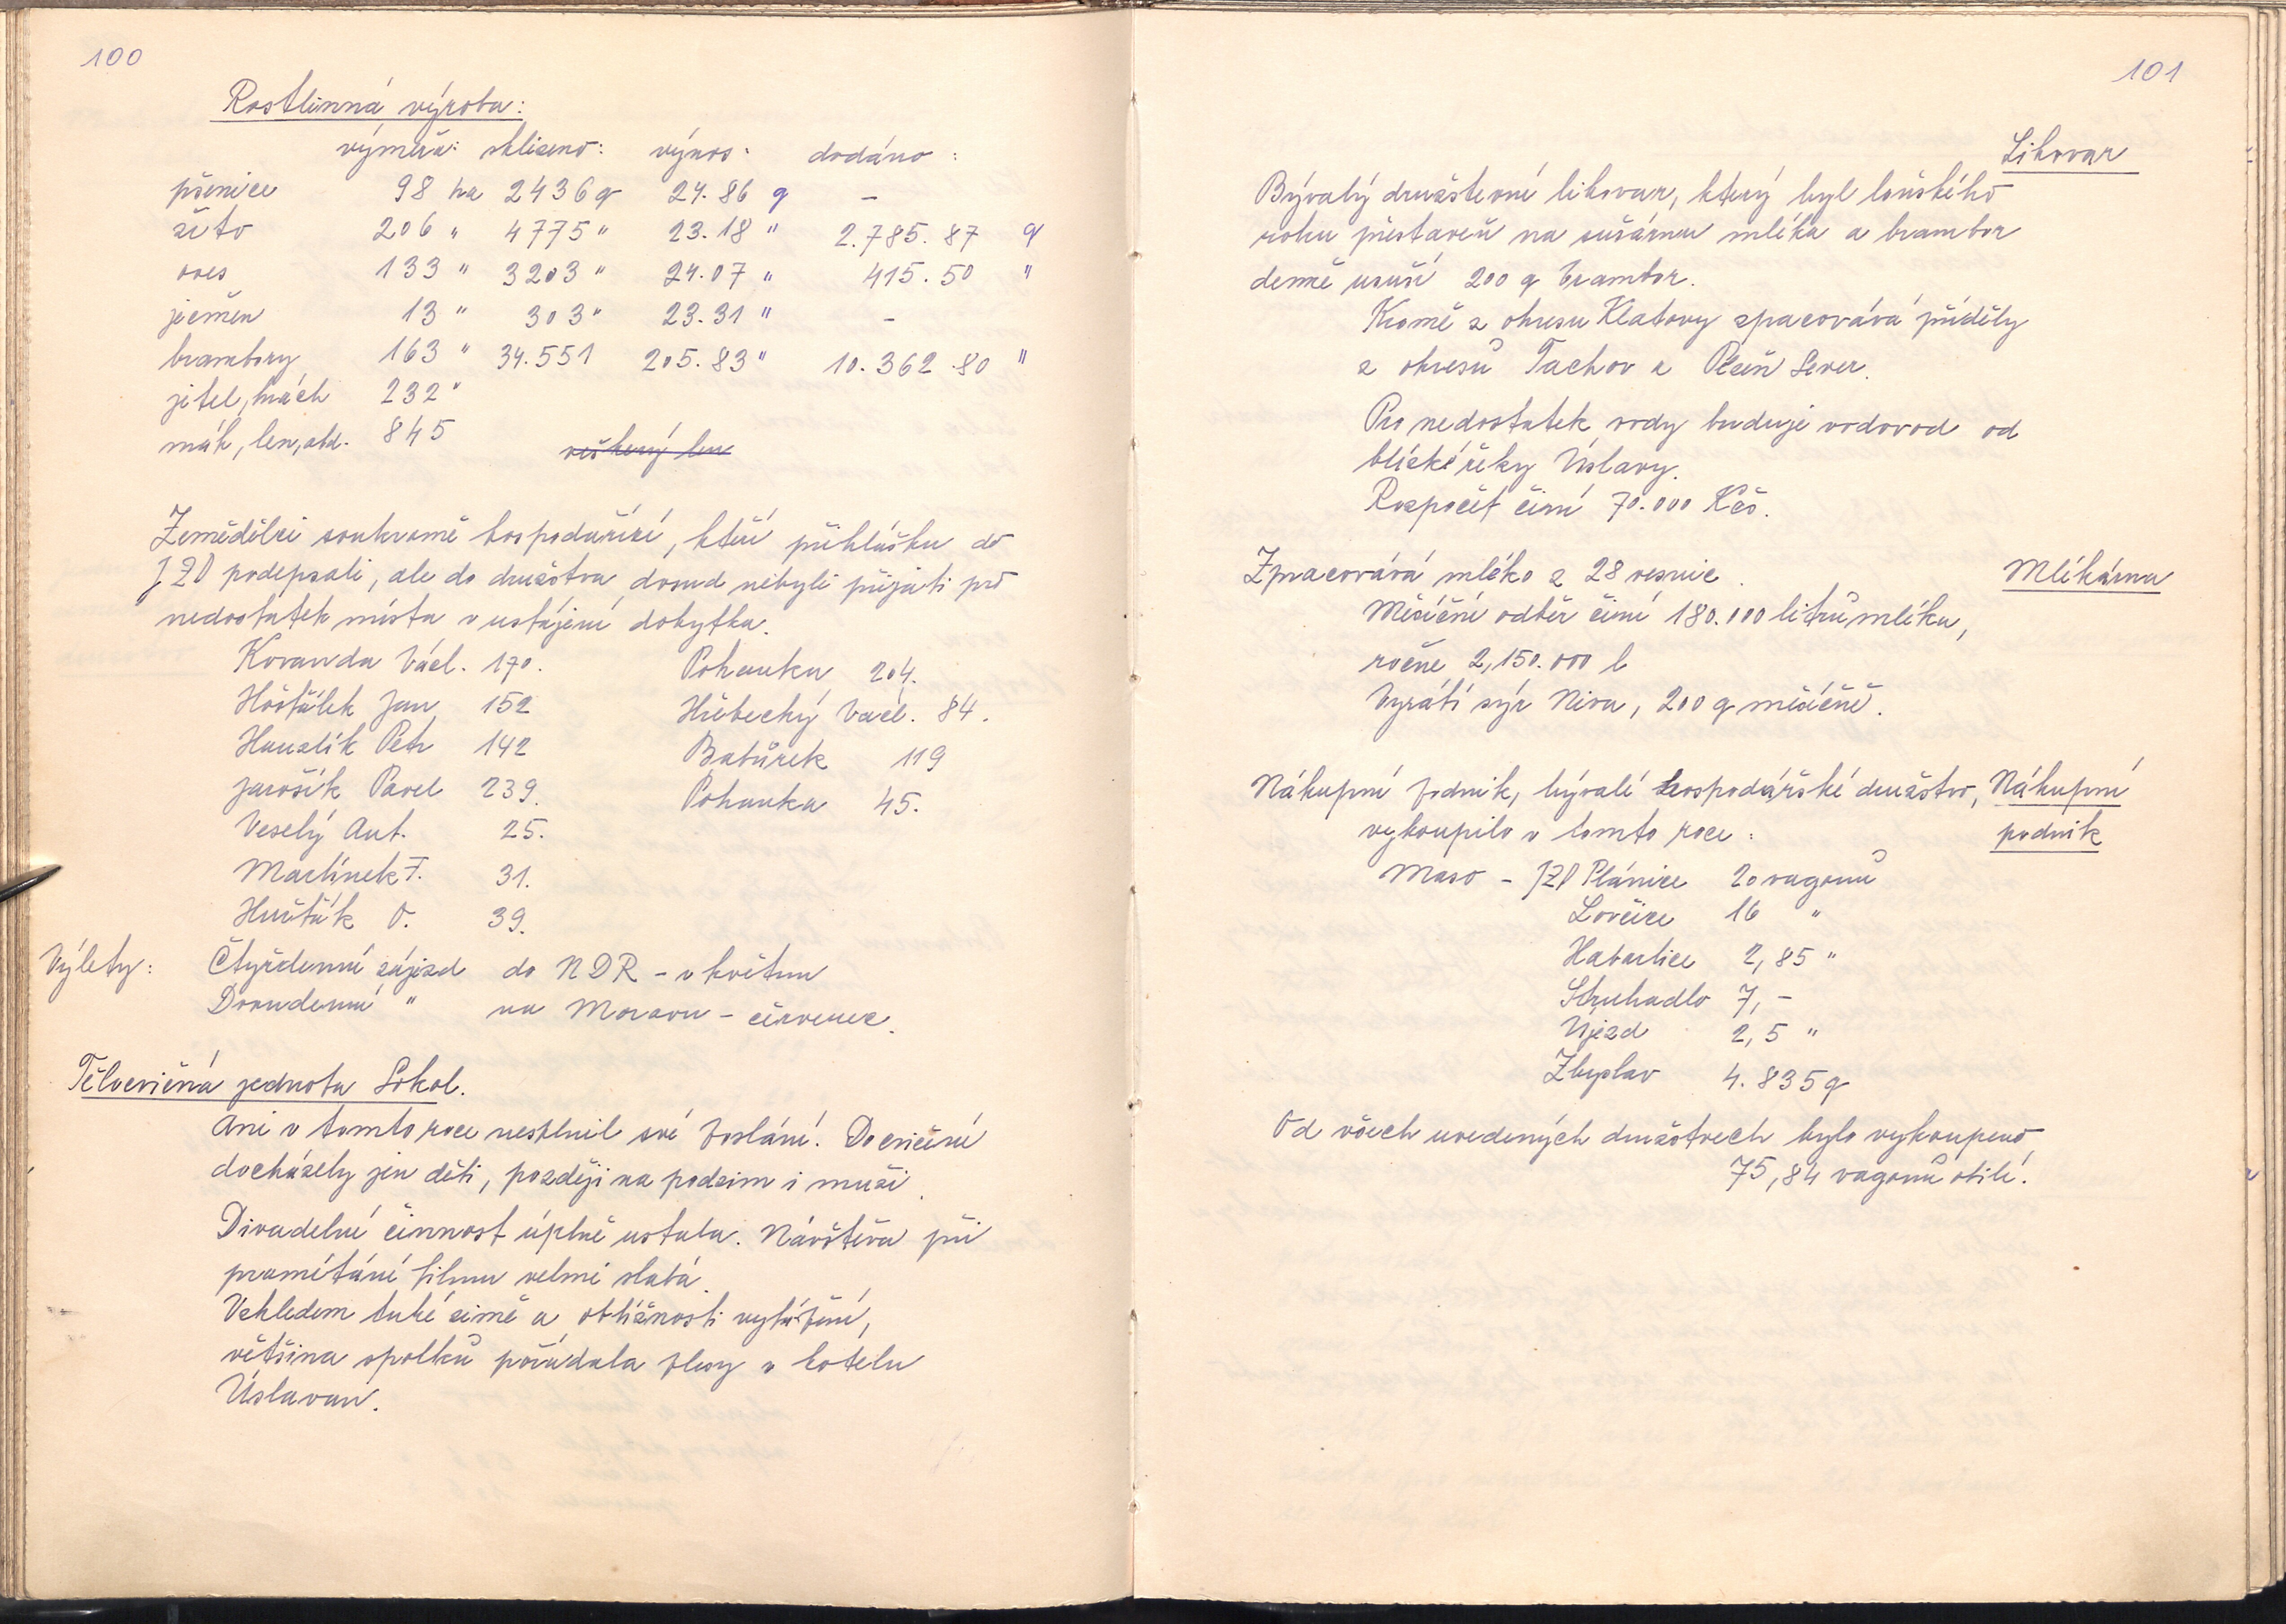 100
Rostlinná výroba:
výměra: sklizeno: výnos: dodáno:
pšenice 98 ha 2436 q 24.86 q –
žito 206 " 4775 " 23.18 " 2.785.87 q
oves 133 " 3203 " 24.07 " 415.50 "
ječmen 13 " 303 " 23.31 " –
brambory 163 " 34.551 205.83 " 10.362.80 "
jetel, hrách 232 "
mák, len, atd. 845
veškerý len
Zemědělci soukromě hospodařící, kteří přihlášku do
JZD podepsali, ale do družstva dosud nebyli přijati pro
nedostatek místa v ustájení dobytka.
Kovanda Václ. 170. Pohanka 204.
Hošťálek Jan 152 Hřebecký Václ. 84.
Hauzlík Petr 142 Batůrek 119
Jarošík Pavel 239. Pohanka 45.
Veselý Ant. 25.
Martínek F. 31.
Huťák O. 39.
Výlety: Čtyřdenní zájezd do NDR – v květnu
Dvoudenní " na Moravu – červenec.
Tělocvičná jednota Sokol.
Ani v tomto roce nesplnil své poslání. Do cvičení
docházely jen děti, později na podzim i muži.
Divadelní činnost úplně ustala. Návštěva při
promítání filmu velmi slabá.
Vzhledem tuhé zimě a obtížnosti vytápění,
většina spolků pořádala plesy v hotelu
Úslavan.
101
Lihovar
Bývalý družstevní lihovar, který byl loňského
roku přestavěn na sušárnu mléka a brambor
denně usuší 200 q brambor.
Kromě z okresu Klatovy zpracovává příděly
z okresů Tachov a Plzeň Sever.
Pro nedostatek vody buduje vodovod od
blízké řeky Úslavy.
Rozpočet činí 70.000 Kčs.
Zpracovává mléko z 28 vesnic. Mlékárna
Měsíční odběr činí 180.000 litrů mléka,
ročne 2,150.000 l
Vyrábí sýr Niva, 200 q měsíčně.
Nákupní podnik, bývalé hospodářské družstvo, Nákupní
vykoupilo v tomto roce: podnik
Maso – JZD Plánice 20 vagonů
Lovčice 16 "
Habartice 2,85 "
Struhadlo 7,–
Újezd 2,5 "
Zbyslav 4.835 q
Od všech uvedených družstvech bylo vykoupeno
75,84 vagonů obilí.